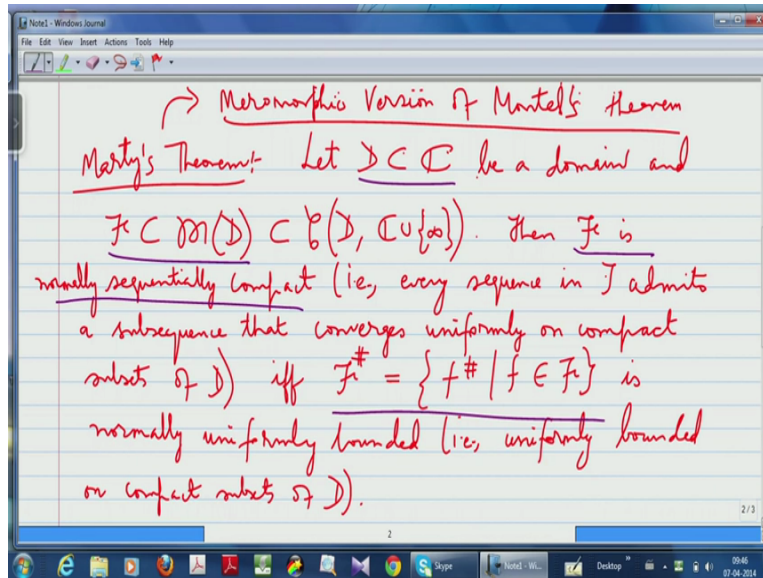 Note1 - Windows Journal
File Edit View Insert Actions Tools Help
→ Meromorphic Version of Montel's theorem
Marty's Theorem: Let D ⊂ ℂ be a domain and
ℱ ⊂ M(D) ⊂ C(D, ℂ∪{∞}). Then ℱ is
normally sequentially compact (i.e., every sequence in ℱ admits
a subsequence that converges uniformly on compact
subsets of D) iff ℱ^# = {f^# | f ∈ ℱ} is
normally uniformly bounded (i.e., uniformly bounded
on compact subsets of D).
2/3
2
Skype
Note1 - Wi...
Desktop
09:46
07-04-2014